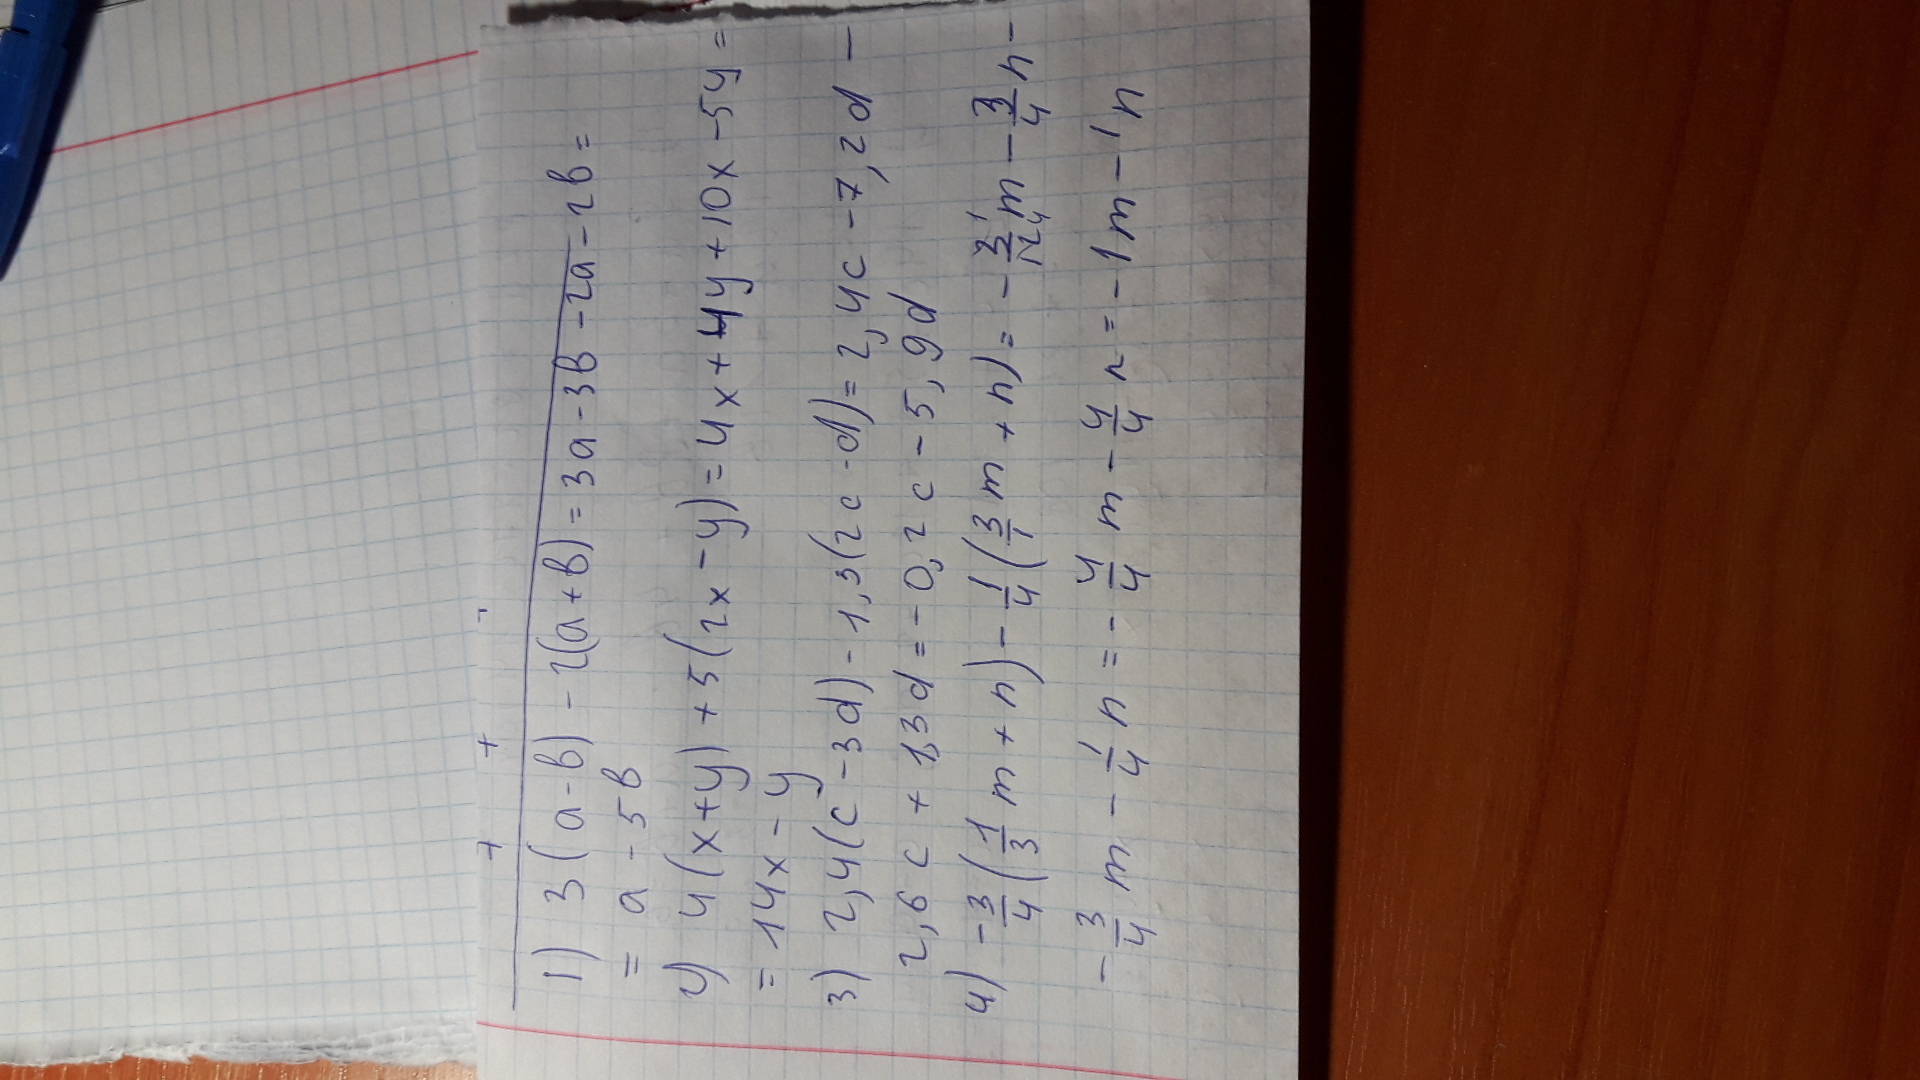 + + -
1) 3(a-b) - 2(a+b) = 3a - 3b - 2a - 2b =
= a - 5b
2) 4(x+y) + 5(2x-y) = 4x + 4y + 10x - 5y =
= 14x - y
3) 2,4(c-3d) - 1,3(2c-d) = 2,4c - 7,2d -
2,6c + 1,3d = -0,2c - 5,9d
4) -3/4(1/3 m + n) - 1/4(3/1 m + n) = -3/12 1/4 m - 3/4 n -
- 3/4 m - 1/4 n = - 4/4 m - 4/4 n = - 1m - 1n